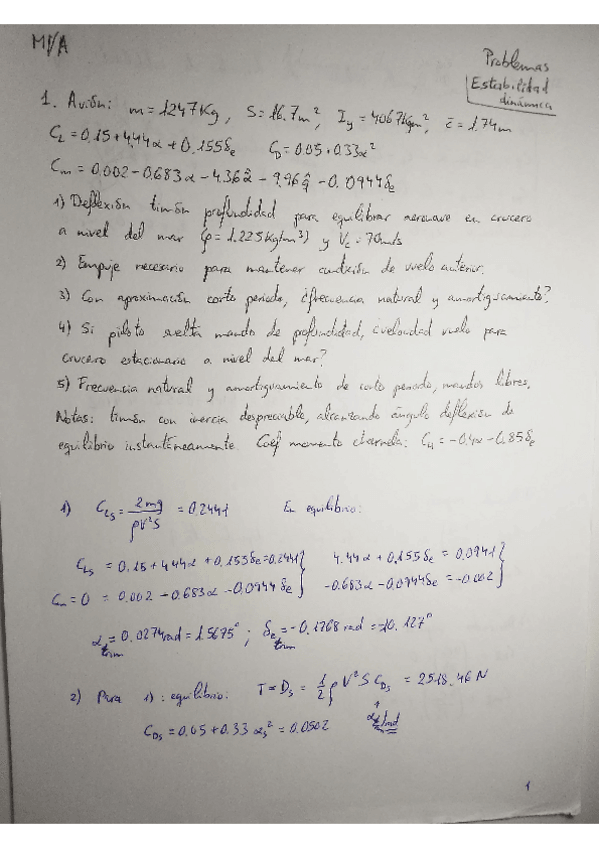 MVA
Problemas
Estabilidad
dinámica
1. Avión: m = 1247 Kg, S = 16.7 m², Iy = 4067 Kgm², c̄ = 1.74 m
CL = 0.15 + 4.44α + 0.155δe    CD = 0.05 + 0.33α²
Cm = 0.002 - 0.683α - 4.36α̂ - 9.96q̂ - 0.0944δe
1) Deflexión timón profundidad para equilibrar aeronave en crucero
a nivel del mar (ρ = 1.225 Kg/m³) y Vc = 70 m/s
2) Empuje necesario para mantener condición de vuelo anterior.
3) Con aproximación corto periodo, ¿frecuencia natural y amortiguamiento?
4) Si piloto suelta mando de profundidad, ¿velocidad vuelo para
crucero estacionario a nivel del mar?
5) Frecuencia natural y amortiguamiento de corto periodo, mandos libres.
Notas: timón con inercia despreciable, alcanzando ángulo deflexión de
equilibrio instantáneamente. Coef momento charnela: CH = -0.4α - 0.85δe
1) CLs = 2mg / ρV²S = 0.2441    En equilibrio:
CLs = 0.15 + 4.44α + 0.155δe = 0.2441 }    4.44α + 0.155δe = 0.0941 }
Cm = 0 = 0.002 - 0.683α - 0.0944δe }    -0.683α - 0.0944δe = -0.002 }
α trim = 0.0274 rad = 1.5695°; δe trim = -0.1768 rad = -10.127°
2) Para 1): equilibrio: T = Ds = 1/2 ρV²S CDs = 2518.46 N
CDs = 0.05 + 0.33 αs² = 0.0502
1